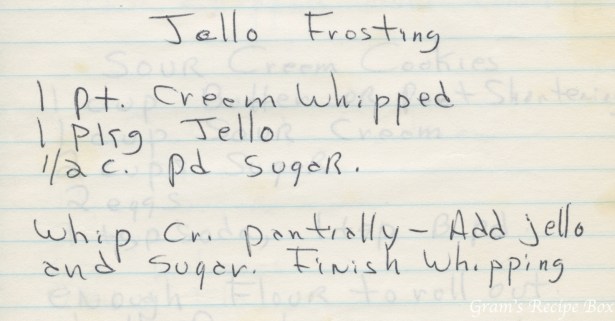 Jello Frosting
1 pt. Cream Whipped
1 pkg Jello
1/2 c. pd sugar.
Whip Cr. partially - Add jello
and sugar. Finish whipping
Sour Cream Cookies
Shortening
Cream
2 eggs
enough Flour to roll out
Gram's Recipe Box